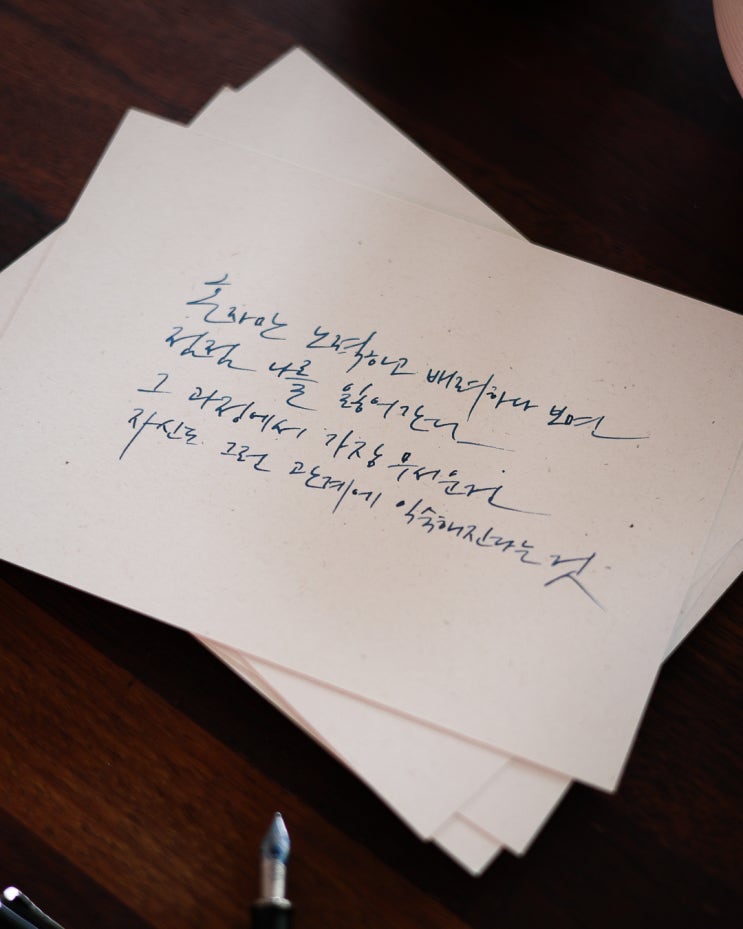 혼자만 노력하고 배려하다 보면
점점 나를 잃어간다
그 과정에서 가장 무서운건
자신도 그런 관계에 익숙해진다는 것